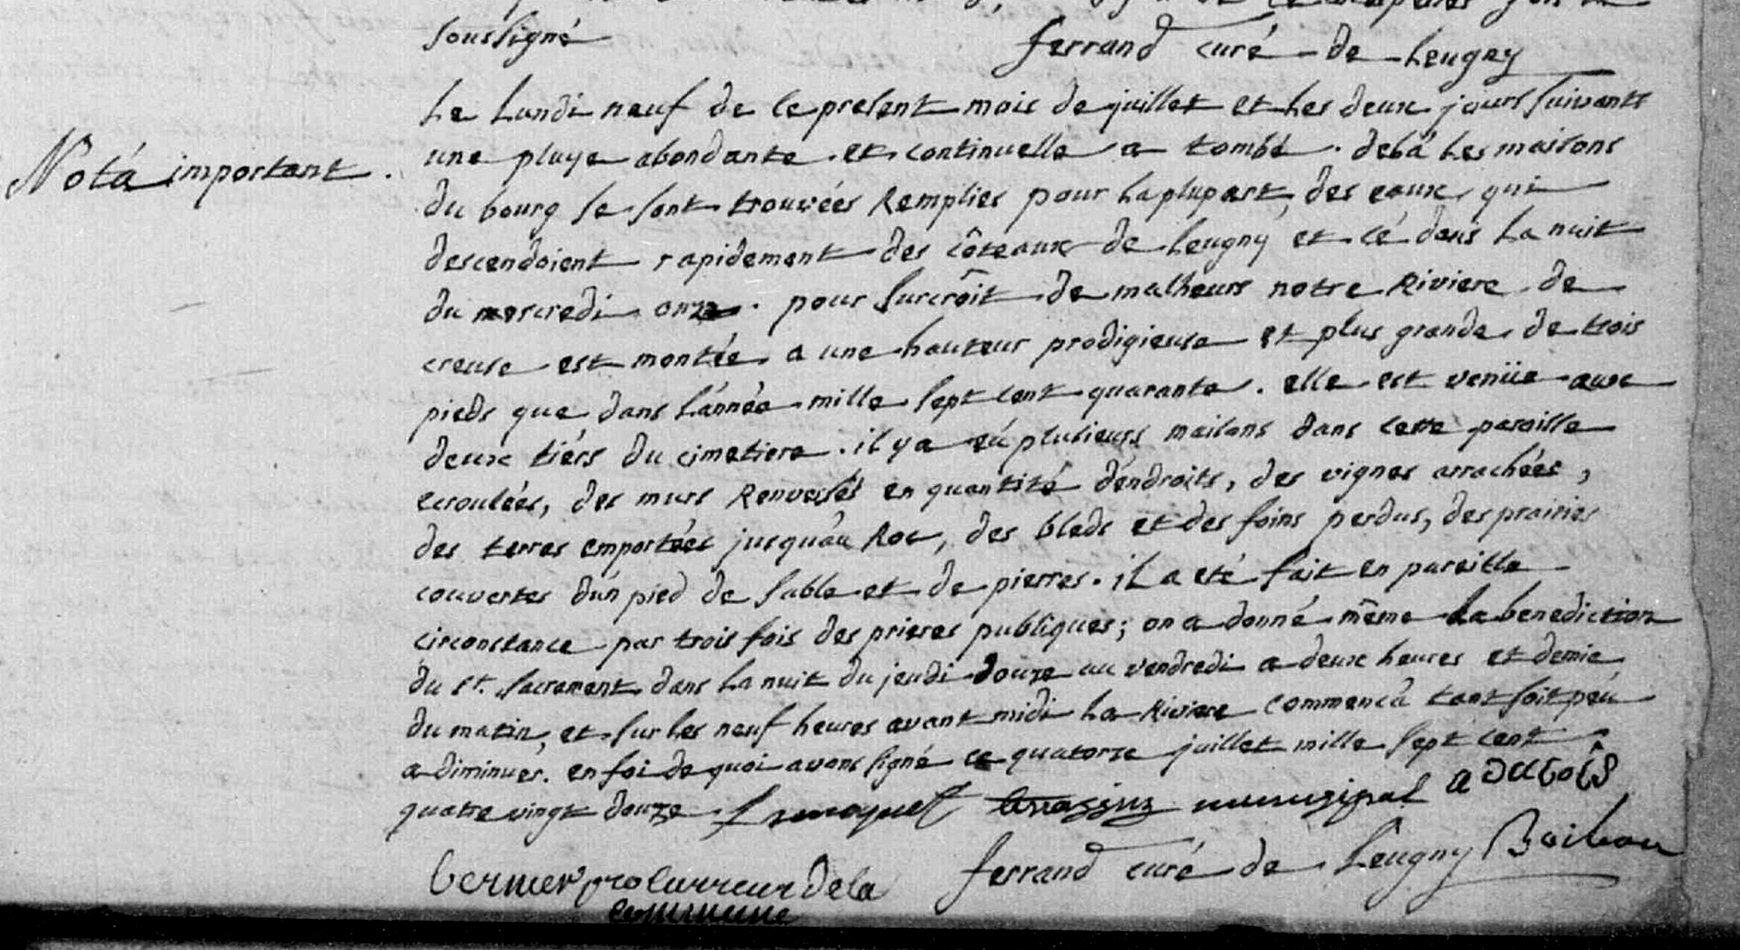 sousigné
ferrand curé de Leugny
Nota important.
Le Lundi neuf de ce present mois de juillet et Les deux jours suivants
une pluye abondante et continuelle a tombé. delà Les maisons
du bourg se sont trouvées Remplies pour La plupart, des eaux qui
descendoient rapidement des côteaux de Leugny et cé dans La nuit
du mercredi onze. pour surcroît de malheurs notre Riviere de
creuse est montée a une hauteur prodigieuse et plus grande de trois
pieds que dans L'année mille sept cent quarante. elle est venüe aux
deux tiérs du cimetiere. il y a eú plusieurs maisons dans cette paroisse
ecroulées, des murs Renversés en quantité d'endroits, des vignes arrachées,
des terres emportées jusqu'au Roc, des bleds et des foins perdus, des prairies
couvertes d'un pied de sable et de pierres. iL a eté fait en pareille
circonstance par trois fois des prieres publiques; on a donné même La benediction
du st. sacrement dans La nuit du jeudi douze au vendredi a deux heures et demie
du matin, et sur les neuf heures avant midi La Riviere commença tant soit peu
a diminuer. en foi de quoi avons signé ce quatorze juillet mille sept cent
quatre vingt douze municipal
ferrand curé de Leugny
bernier procurreur de la
commune